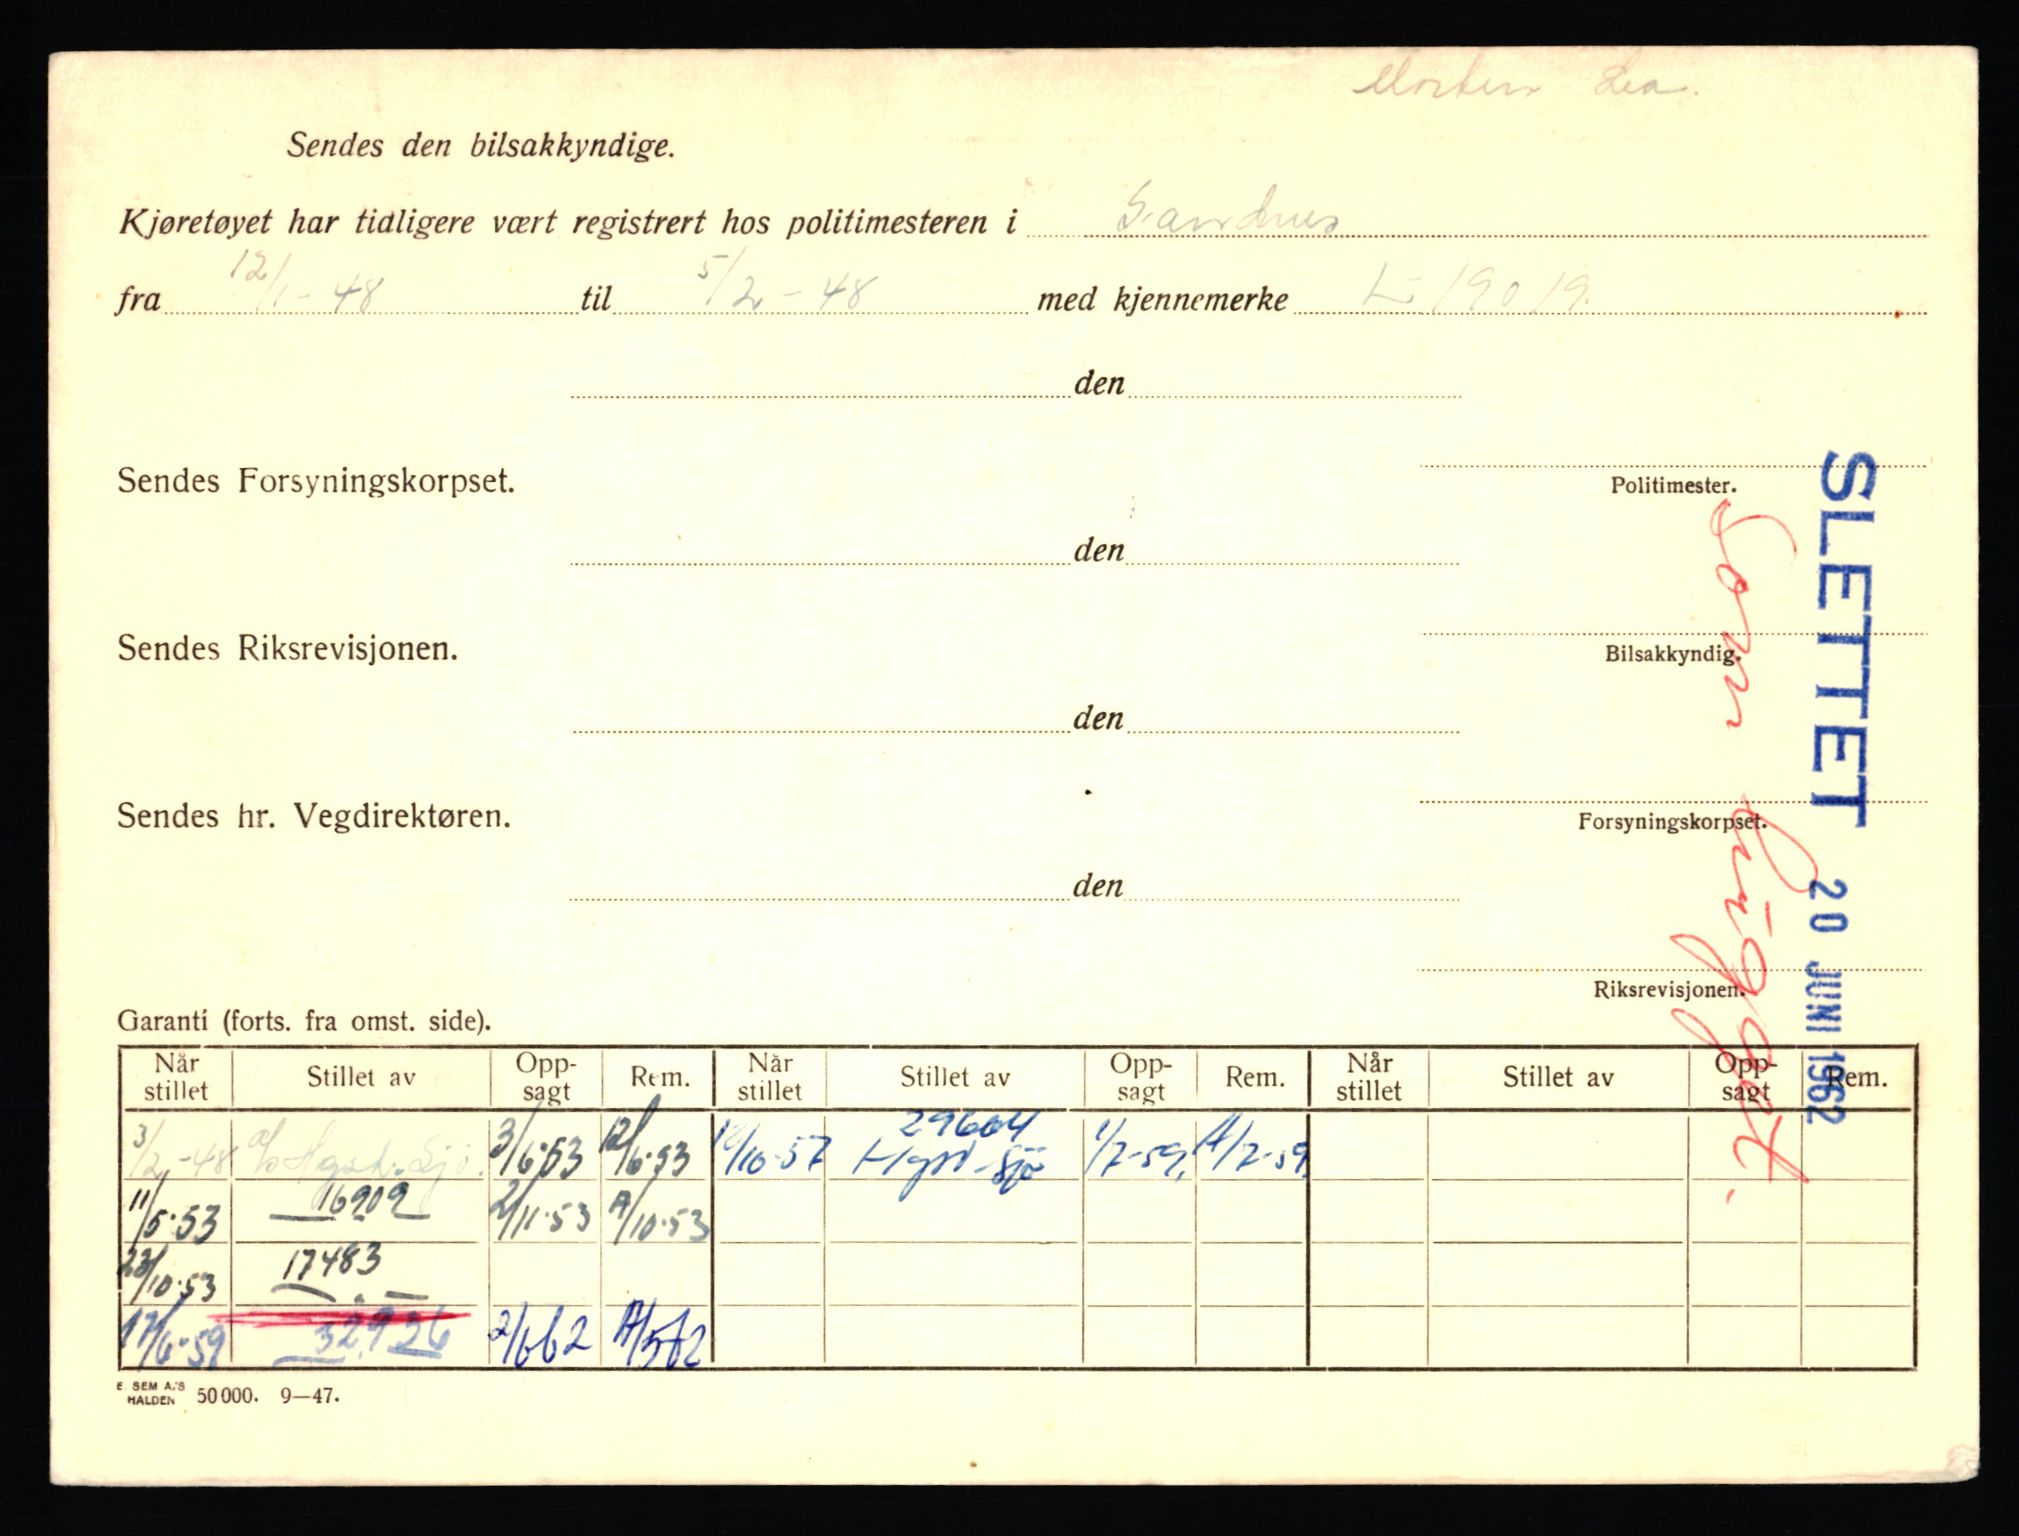 Morten Lea.
Sendes den bilsakkyndige.
Kjøretøyet har tidligere vært registrert hos politimesteren i Sandnes
fra 12/1-48 til 5/2-48 med kjennemerke L-19019.
den
Sendes Forsyningskorpset.
Politimester.
den
Sendes Riksrevisjonen.
Bilsakkyndig.
den
Sendes hr. Vegdirektøren.
Forsyningskorpset.
den
Riksrevisjonen.
SLETTET 20 JUNI 1962
Som hugget.
Garanti (forts. fra omst. side).
Når stillet Stillet av Opp-sagt Rem. Når stillet Stillet av Opp-sagt Rem. Når stillet Stillet av Opp-sagt Rem.
3/2-48 Hgsd. Sjø. 3/6-53 12/6-53 12/10-57 29604 Hgsd-Sjø 1/7-59. A/7-59.
11/5-53 16909 2/11-53 A/10-53
23/10-53 17483
17/6-59 32936 2/6 62 A/5 62
E. SEM A/S HALDEN 50 000. 9—47.